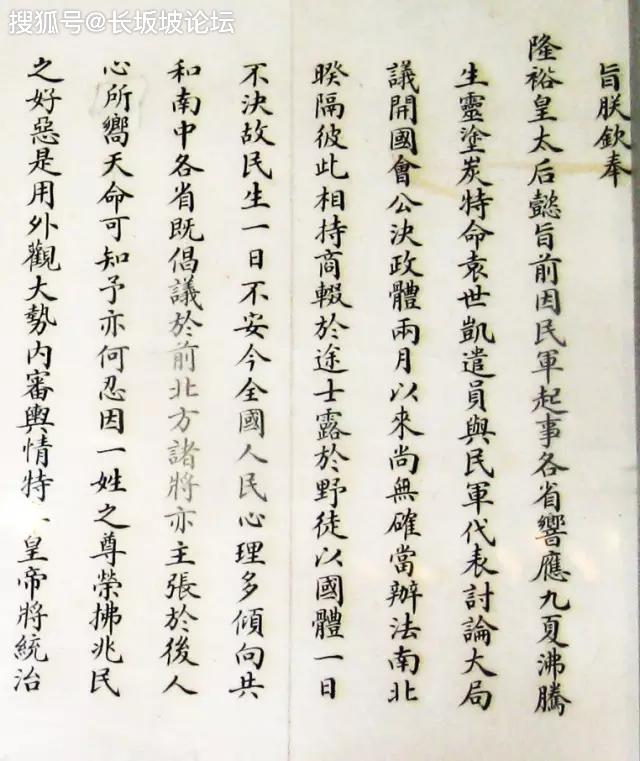 搜狐号@长坂坡论坛
旨朕欽奉
隆裕皇太后懿旨前因民軍起事各省響應九夏沸騰
生靈塗炭特命袁世凱遣員與民軍代表討論大局
議開國會公決政體兩月以來尚無確當辦法南北
暌隔彼此相持商輟於途士露於野徒以國體一日
不決故民生一日不安今全國人民心理多傾向共
和南中各省既倡議於前北方諸將亦主張於後人
心所嚮天命可知予亦何忍因一姓之尊榮拂兆民
之好惡是用外觀大勢內審輿情特皇帝將統治